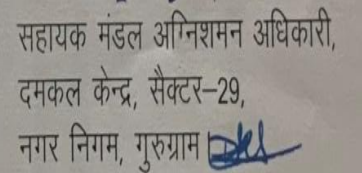 सहायक मंडल अग्निशमन अधिकारी,
दमकल केन्द्र, सैक्टर-29,
नगर निगम, गुरुग्राम